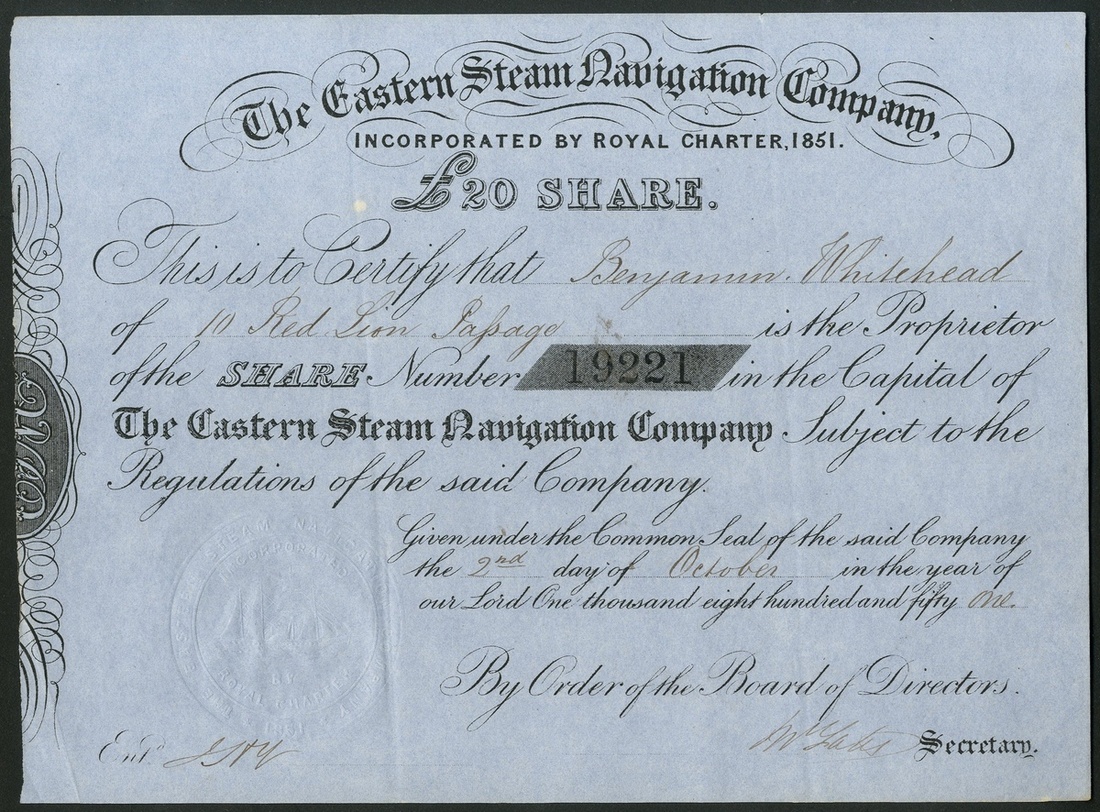 The Eastern Steam Navigation Company,
INCORPORATED BY ROYAL CHARTER, 1851.
£20 SHARE.
This is to Certify that Benjamin Whitehead
of 10 Red Lion Passage is the Proprietor
of the SHARE Number 19221 in the Capital of
The Eastern Steam Navigation Company Subject to the
Regulations of the said Company.
Given under the Common Seal of the said Company
the 2nd day of October in the year of
our Lord One thousand eight hundred and fifty one.
By Order of the Board of Directors.
Entd
Secretary.